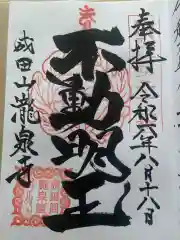 奉拝
令和六年八月十八日
不動明王
成田山龍泉寺